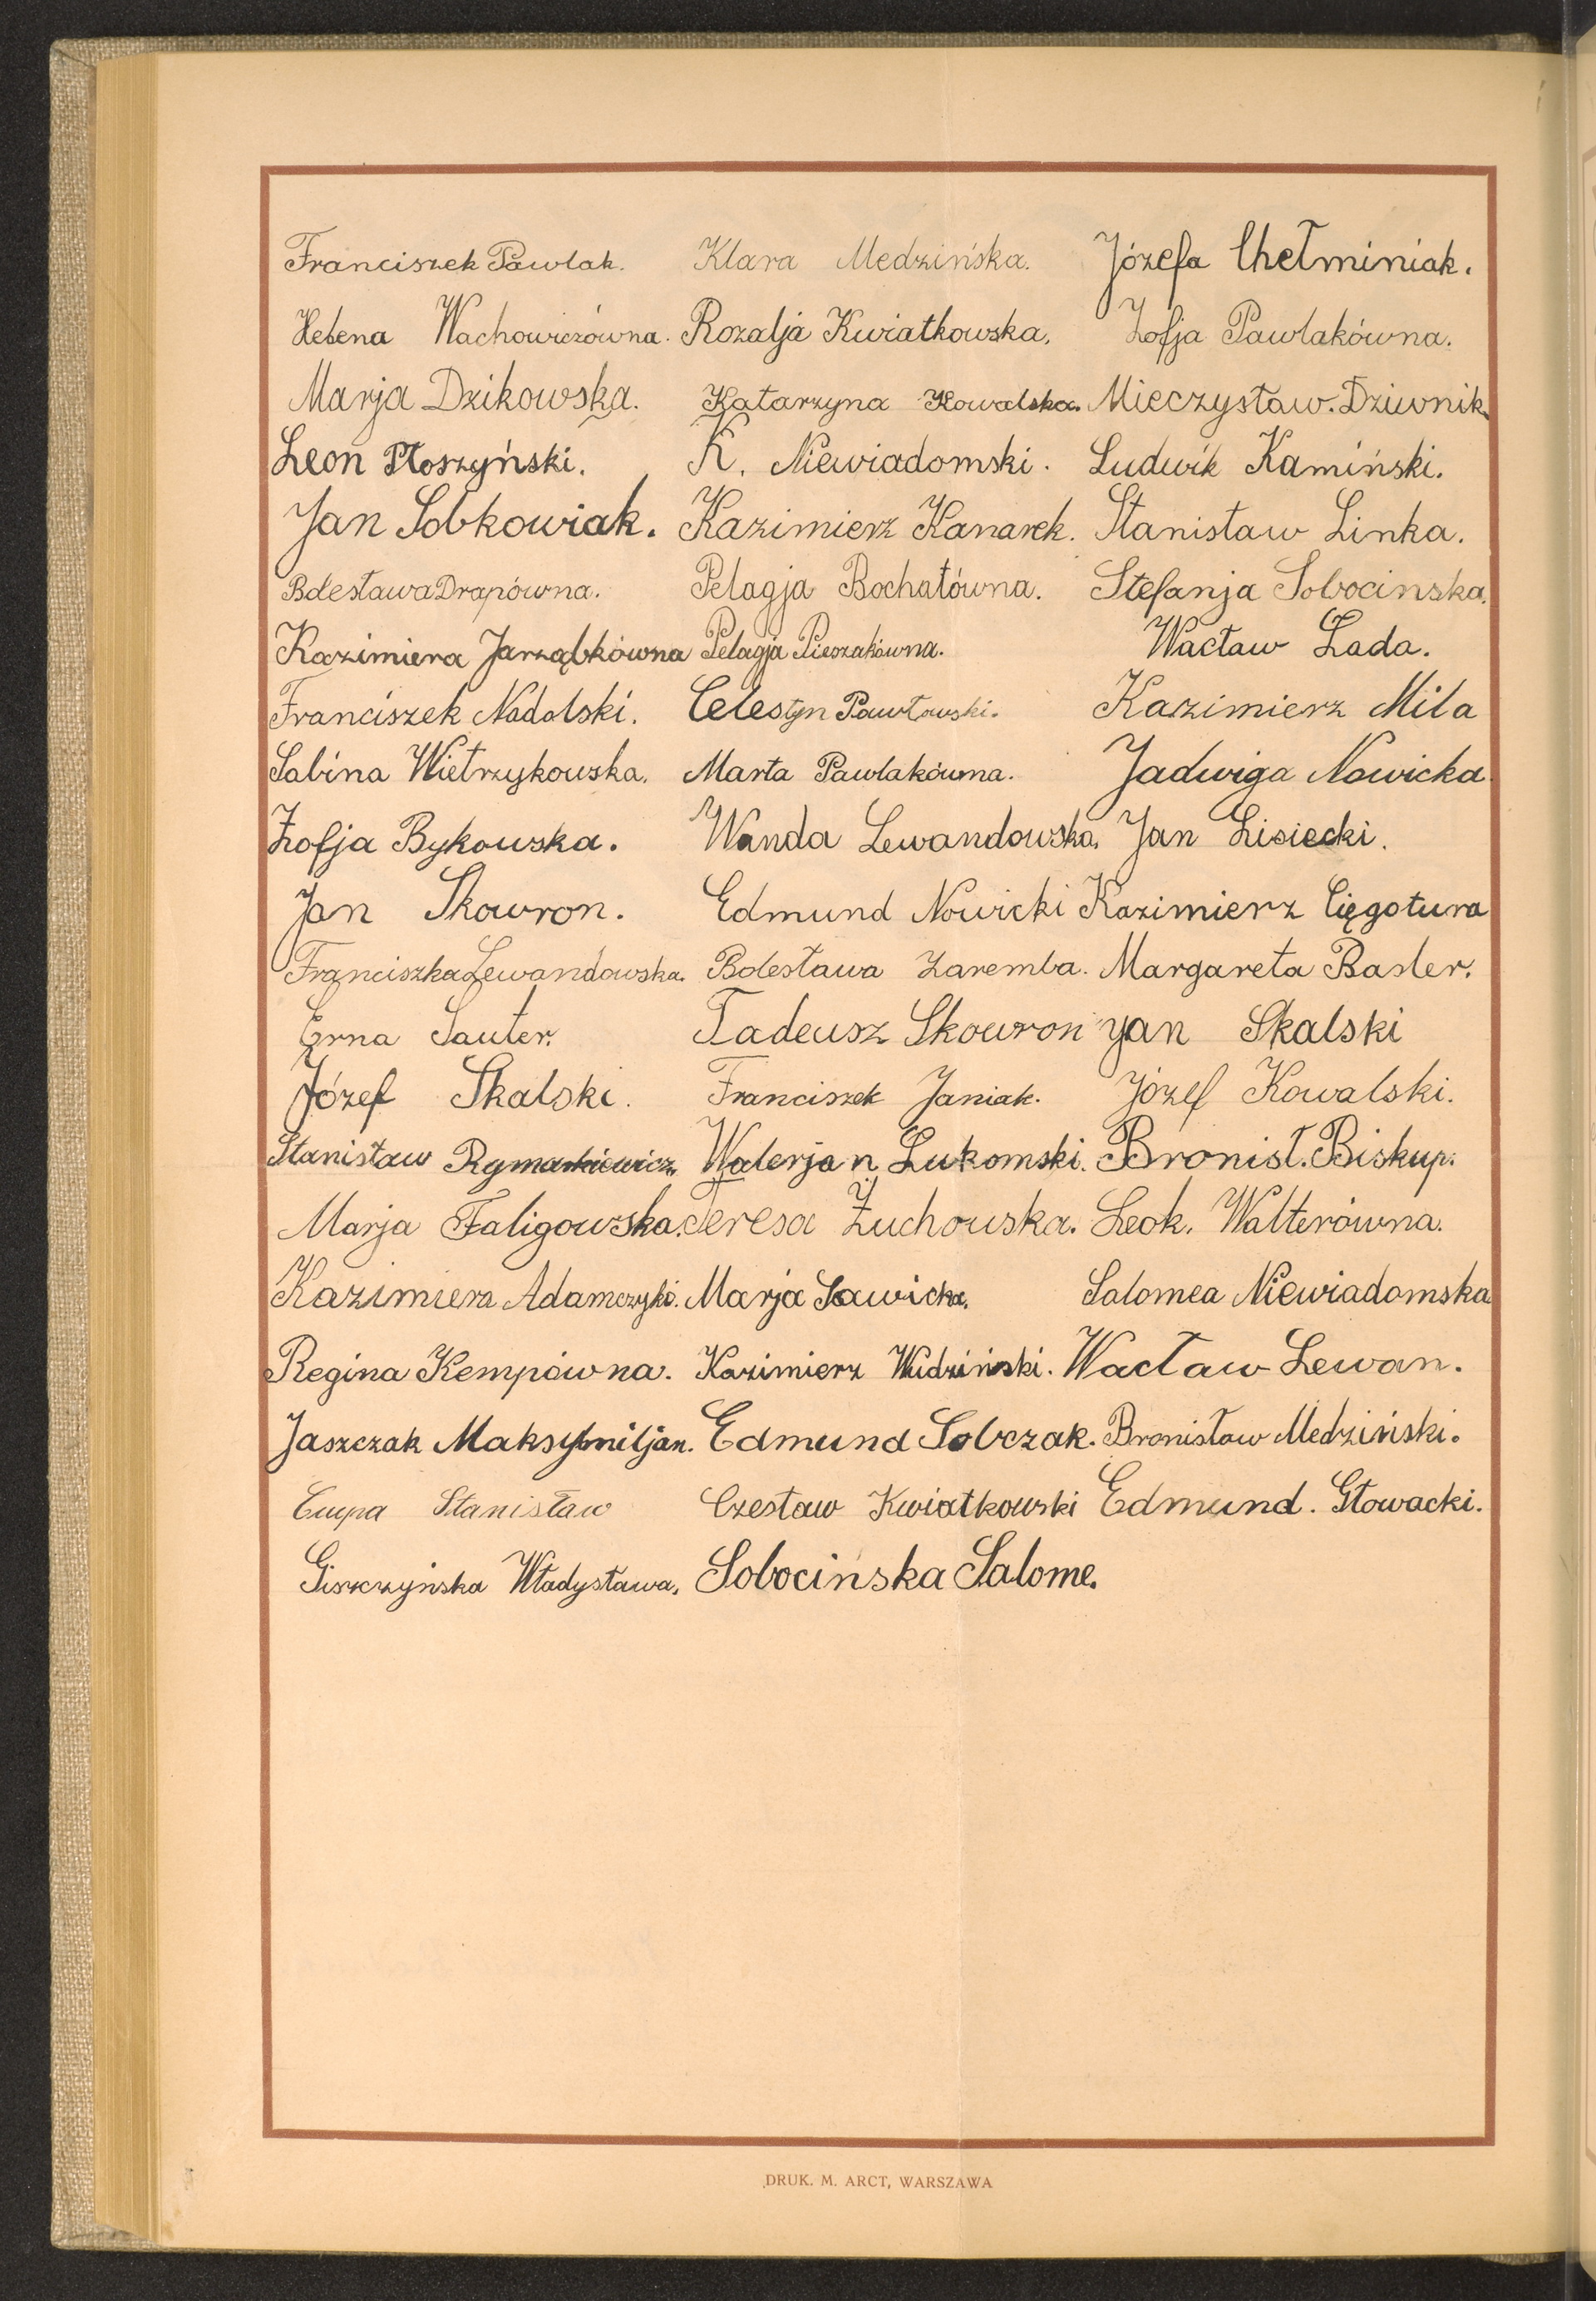 Franciszek Pawlak. Klara Medzińska. Józefa Chełminiak.
Helena Wachowiczówna. Rozalja Kwiatkowska. Zofja Pawlakówna.
Marja Dzikowska. Katarzyna Kowalska. Mieczysław. Dziwnik.
Leon Płoszyński. K. Niewiadomski. Ludwik Kamiński.
Jan Sobkowiak. Kazimierz Kanarek. Stanisław Linka.
Bolesława Drapówna. Pelagja Bochatówna. Stefanja Sobocinska.
Kazimiera Jarząbkówna Pelagja Pieszakówna. Wacław Lada.
Franciszek Nadolski. Celestyn Pawłowski. Kazimierz Mila
Sabina Wietrzykowska. Marta Pawlakówna. Jadwiga Nowicka
Zofja Bykowska. Wanda Lewandowska. Jan Lisiecki.
Jan Skowron. Edmund Nowicki Kazimierz Cięgotura
Franciszka Lewandowska. Bolesława Zaremba. Margareta Basler.
Erna Sauter. Tadeusz Skowron Jan Skalski
Józef Skalski. Franciszek Janiak. Józef Kowalski.
Stanisław Rymarkiewicz. Walerjan Lukomski. Bronisł. Biskup.
Marja Faligowska. Teresa Żuchowska. Leok. Walterówna.
Kazimiera Adamczyk. Marja Sawicka. Salomea Niewiadomska
Regina Kempówna. Kazimierz Wudziński. Wacław Lewan.
Jaszczak Maksymiljan. Edmund Sobczak. Bronisław Medziński.
Stanisław Czesław Kwiatkowski Edmund. Głowacki.
Giszczyńska Władysława. Sobocińska Salome.
DRUK. M. ARCT, WARSZAWA